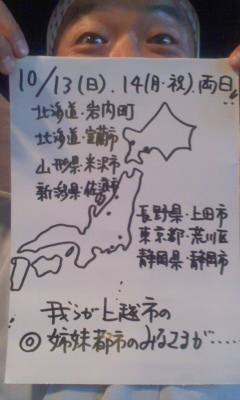 10/13(日)、14(月・祝)、両日
北海道・岩内町
北海道・室蘭市
山形県・米沢市
新潟県・佐渡市
長野県・上田市
東京都・荒川区
静岡県・静岡市
我らが上越市の
◎姉妹都市のみなさまが……